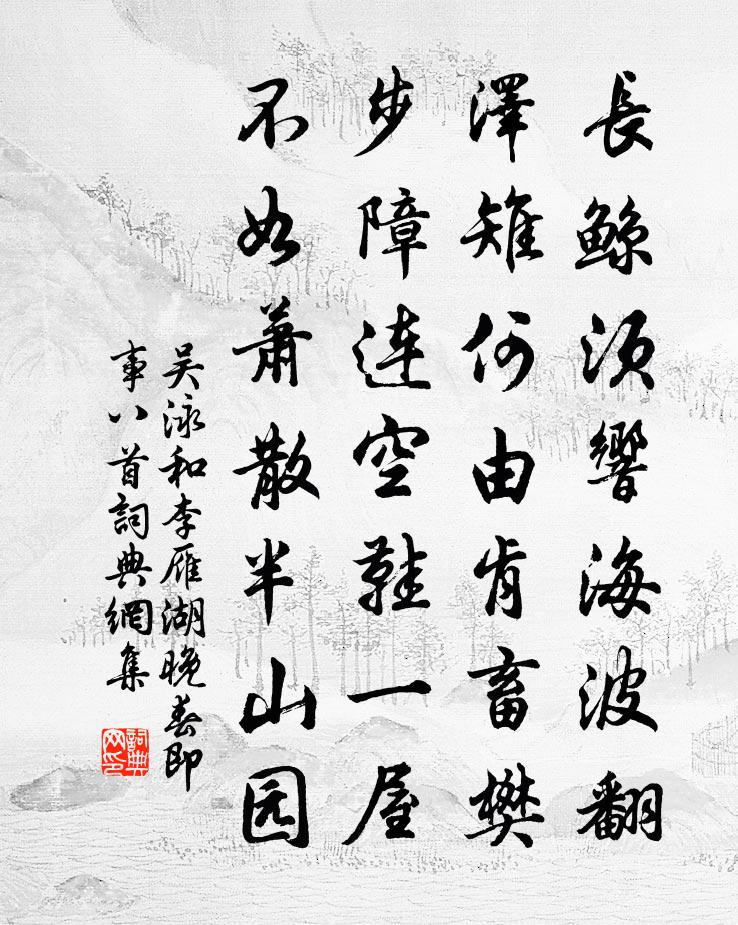 長鯨須響海波翻
澤雉何由肯畜樊
步障連空鞋一屋
不如蕭散半山园
吴泳和李雁湖晚春即
事八首詞典網集
詞典網印